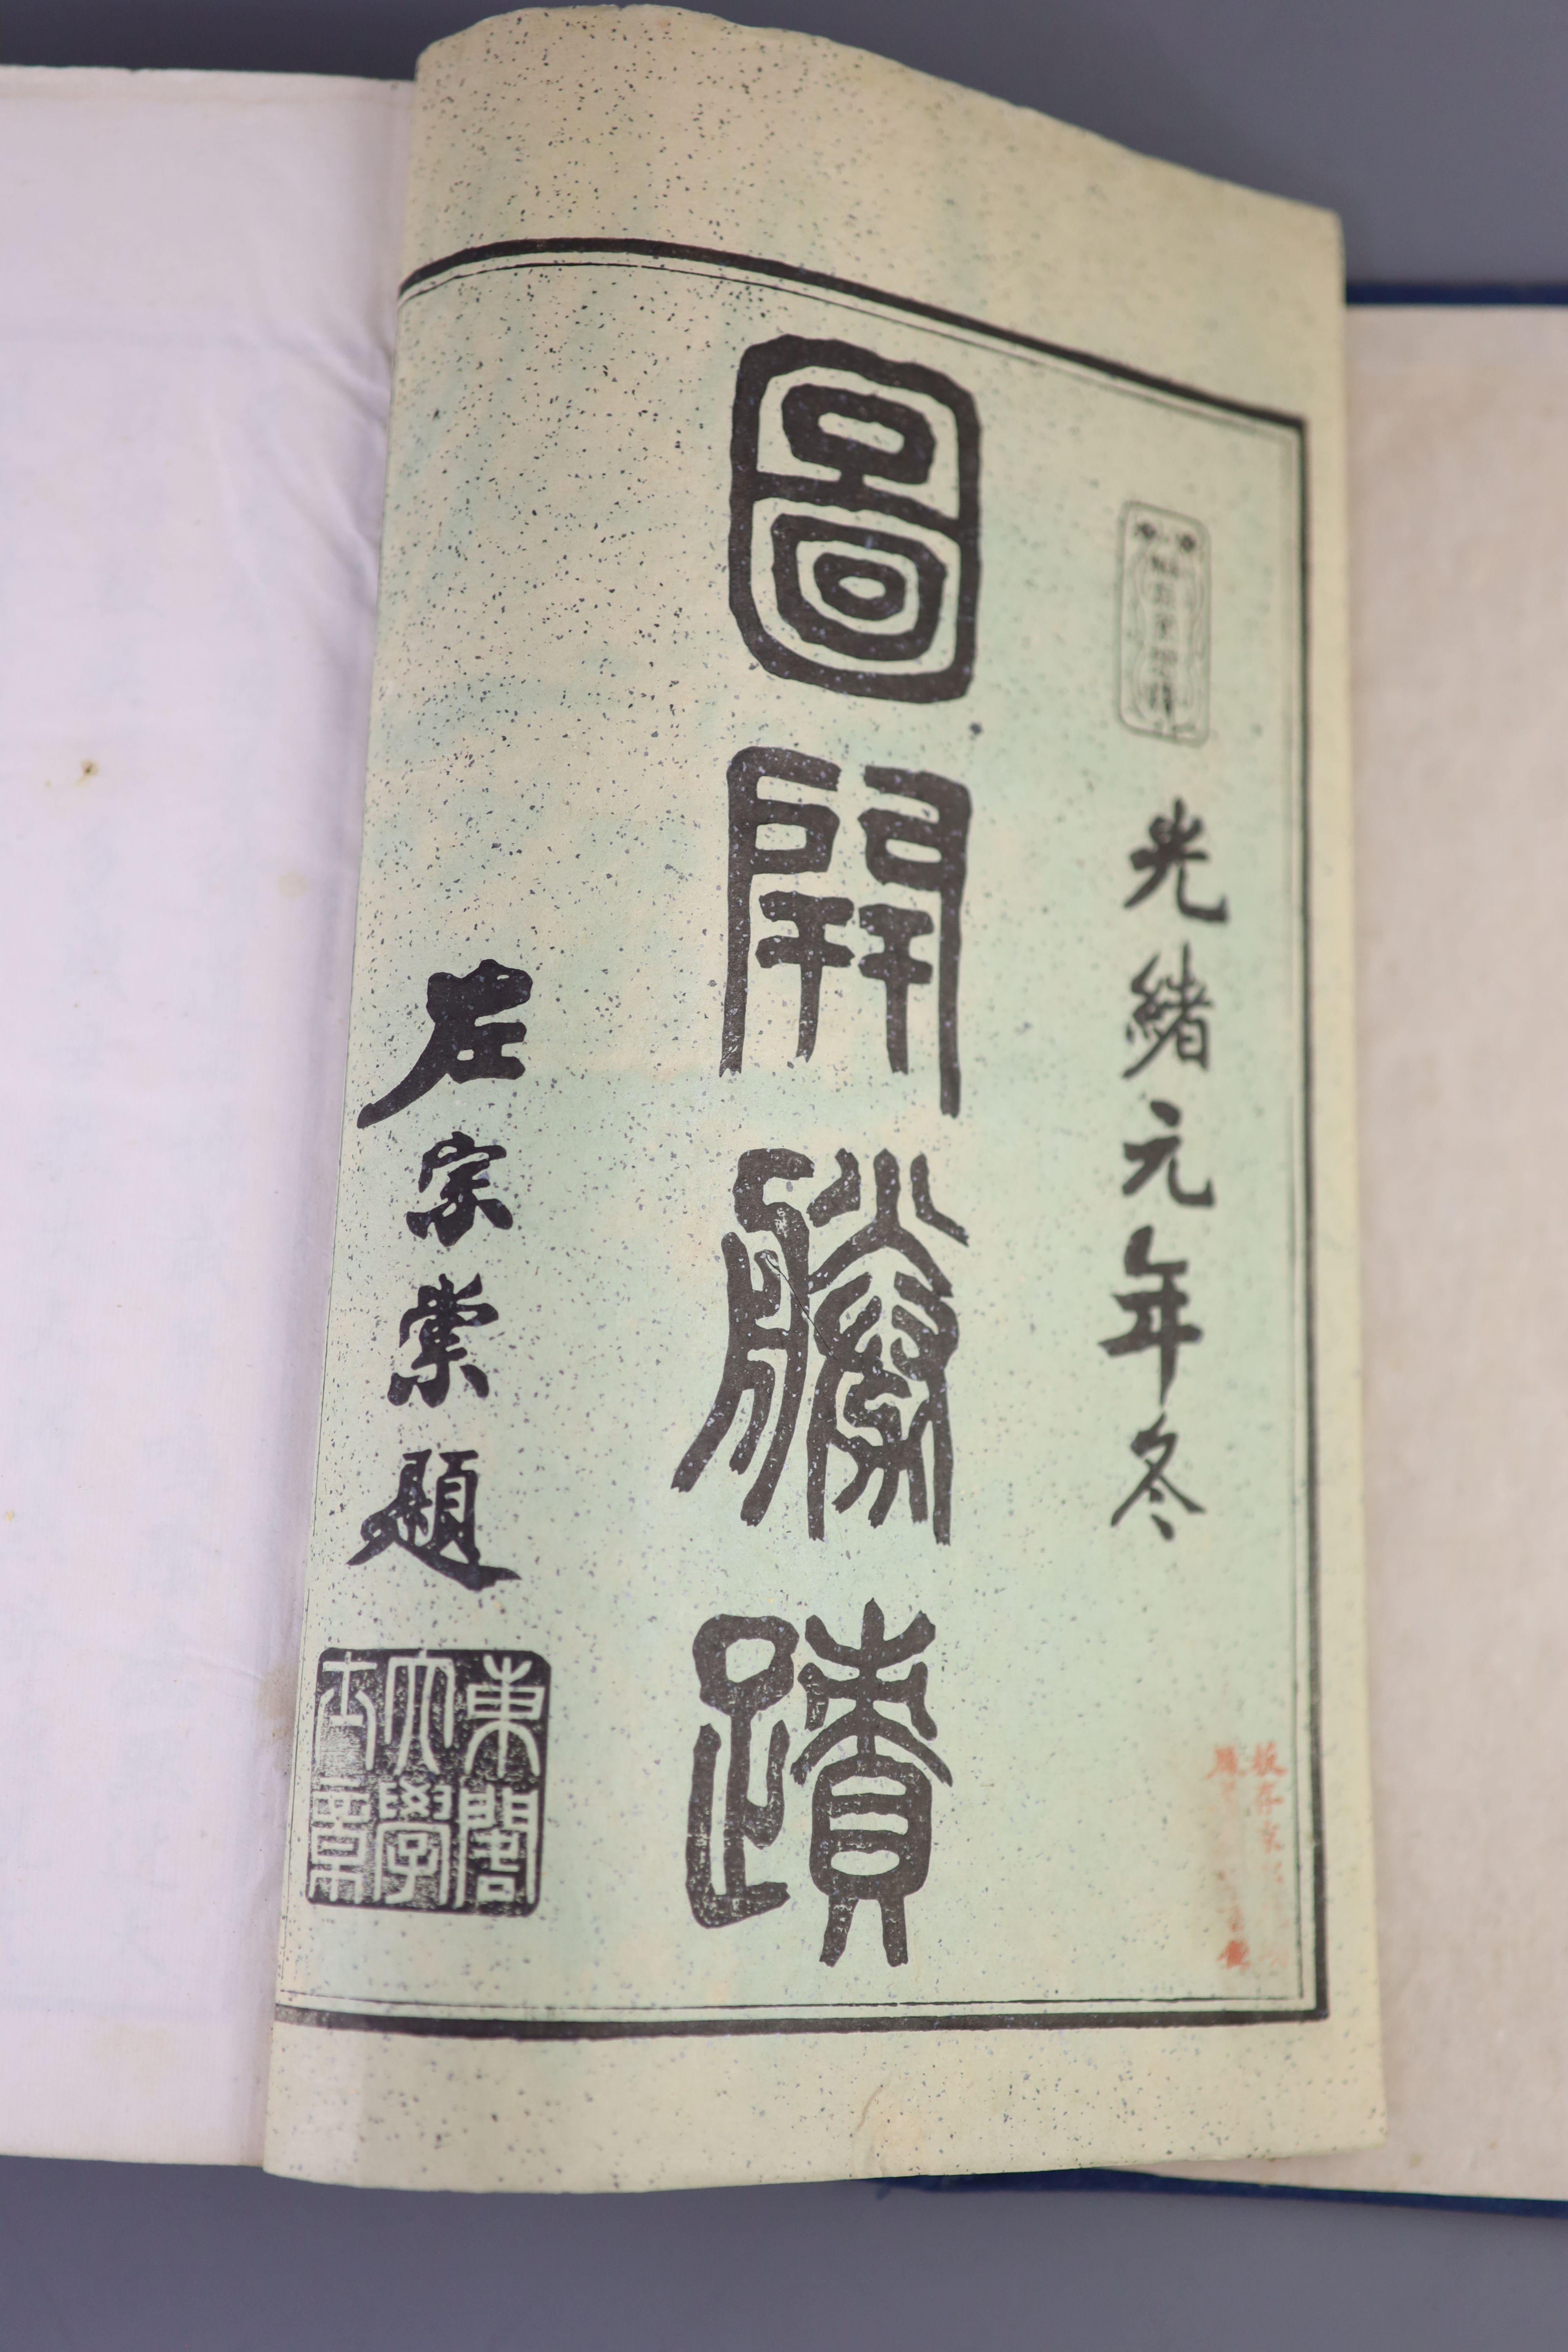 光緒元年冬
圖開勝蹟
左宗棠題
東閣
大學
士章
板存京